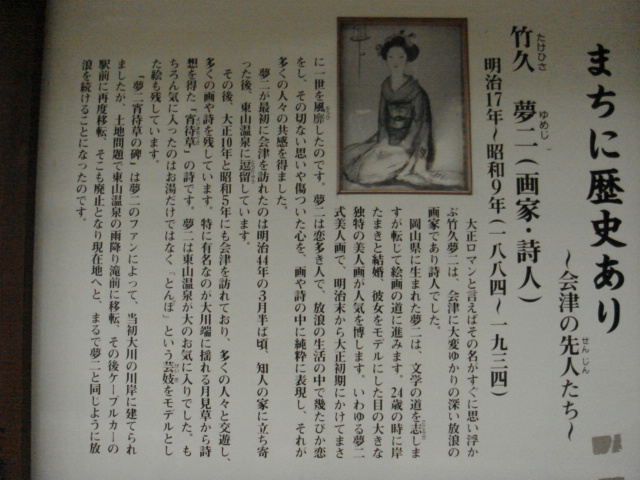 まちに歴史あり
～会津の先人たち～
せんじん
たけひさ ゆめじ
竹久 夢二（画家・詩人）
明治17年～昭和9年（一八八四～一九三四）
大正ロマンと言えばその名がすぐに思い浮か
ぶ竹久夢二は、会津に大変ゆかりの深い放浪の
画家であり詩人でした。
岡山県に生まれた夢二は、文学の道を志しま
すが転じて絵画の道に進みます。24歳の時に岸
たまきと結婚、彼女をモデルにした目の大きな
独特の美人画が人気を博します。いわゆる夢二
式美人画で、明治末から大正初期にかけてまさ
に一世を風靡したのです。夢二は恋多き人で、放浪の生活の中で幾たびか恋
をし、その切ない思いや傷ついた心を、画や詩の中に純粋に表現し、それが
多くの人々の共感を得ました。
夢二が最初に会津を訪れたのは明治44年の3月半ば頃、知人の家に立ち寄
った後、東山温泉に逗留しています。
その後、大正10年と昭和5年にも会津を訪れており、多くの人々と交遊し、
多くの画や詩を残しています。特に有名なのが大川端に揺れる月見草から詩
想を得た『宵待草』の詩です。夢二は東山温泉が大のお気に入りでした。も
ちろん気に入ったのはお湯だけではなく『とんぼ』という芸妓をモデルとし
た絵も残しています。
『夢二宵待草の碑』は夢二のファンによって、当初大川の川岸に建てられ
ましたが、土地問題で東山温泉の雨降り滝前に移転、その後ケーブルカーの
駅前に再度移転、そこも廃止となり現在地へと、まるで夢二と同じように放
浪を続けることになったのです。